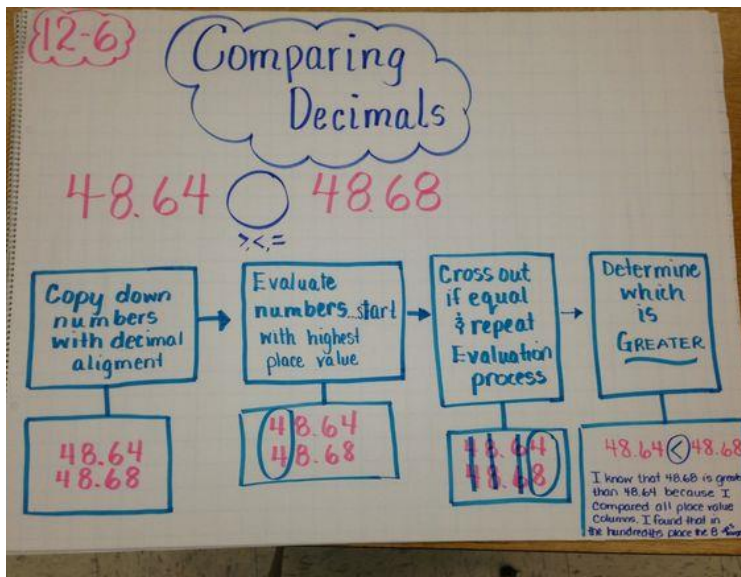 12-6
Comparing
Decimals
48.64 48.68
>,<,=
Copy down
numbers
with decimal
aligment
Evaluate
numbers...start
with highest
place value
Cross out
if equal
& repeat
Evaluation
process
Determine
which
is
GREATER
48.64
48.68
48.64
48.68
48.64
48.68
48.64 < 48.68
I know that 48.68 is greate
than 48.64 because I
compared all place value
columns. I found that in
the hundredths place the 8